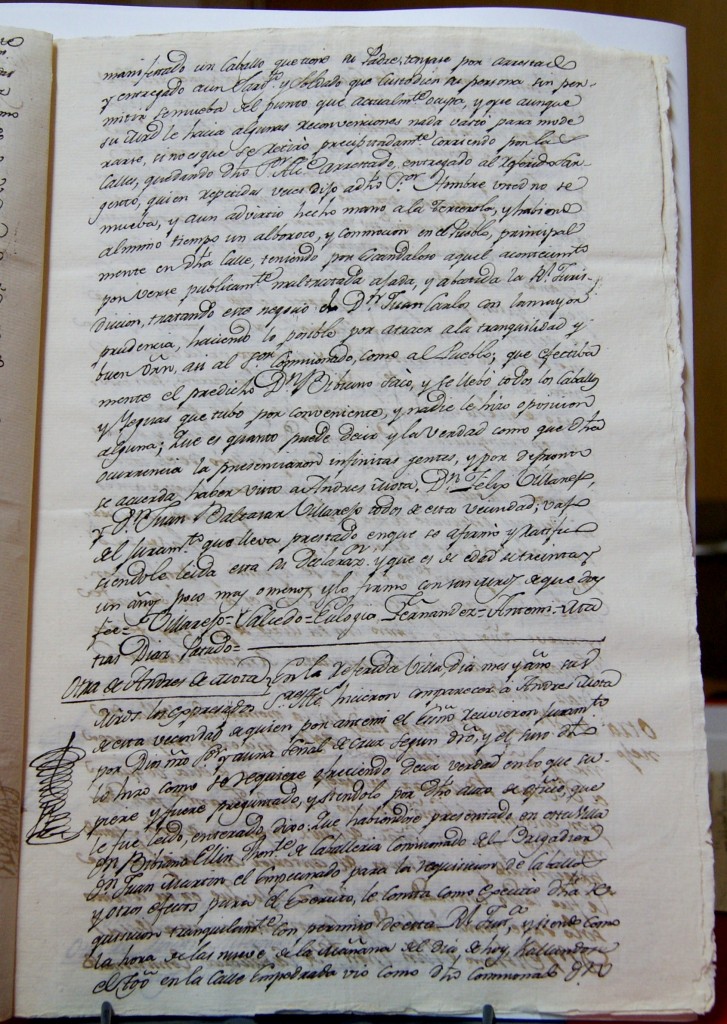 manifestado un Caballo que tiene su Padre, tengase por arrestado
y entregado a un Sargto. y Soldado que custodien su persona sin per-
mitir se mueba del punto que actualmte. ocupa, y que aunque
su Mrd le hacia algunas reconvenciones nada vastó para mode
rarse, si no es que se retiró precipitadamte. corriendo por la
Calles, quedando dho Sor. Alce. arrestado, entregado al referido Sar-
gento, quien repetidas veces dijo a dho Sor. Hombre usted no se
mueba, y aun advirtió hecho mano a la Tercerola, y habiendo
al mismo tiempo un alboroto, y conmocion en el Pueblo, principal
mente en dha Calle, teniendo por escandaloso aquel acontecimto
por verse publicamte. maltratada ajada, y abatida la Rl. Juris-
diccion, tratando este negocio el Dn. Juan Carlos con la mayor
prudencia, haciendo lo posible por atraer a la tranquilidad y
buen orñ, asi al Sor. Comisionado, como al Pueblo; que efectiba
mente el predicho Dn. Bibiano sacó, y se llebó todos los Caballos
y Yeguas que tubo por conveniente, y nadie le hizo oposicion
alguna; Que es quanto puede decir y la verdad como que dha
ocurrencia la presenciaron infinitas gentes, y por de pronto
se acuerda haber visto a Andres Mota, Dn. Felix Villarejo,
y Dn. Juan Baltasar Villarejo todos de esta vecindad; vajo
del Juramto. que lleva prestado en que se afirmó y ratificó
siendole leida esta su declaraon. y que es de edad de treinta y
un años poco mas o menos, y lo firmó con sus mrds. de que doy
fee = Villarejo = Salcedo = Eulogio Fernandez = Antemi = Mta
tias Diaz Patado =
Otra de Andres de Mota} En la referida Villa, dia mes y año sus
Mrds los expresados Sres. Alces. hicieron comparecer a Andres Mota
de esta vecindad de quien por antemi el Esno recivieron juramto.
por Dios ño Sor. y a una señal de Cruz segun dro, y el suso dho
lo hizo como se requiere ofreciendo decir verdad en lo que su-
piere y fuere preguntado, y siendolo por dho auto de oficio, que
le fue leido, enterado, dijo: Que habiendose presentado en esta Villa
Dn Bibiano Ellin Thente. de Caballeria Comisionado del Brigadier
Dn Juan Martin el Empecinado para la requisicion de Caballos
y otros efectos para el Exercito, le consta como egecutó dha re-
quisicion tranquilamte. con permiso de esta Rl. Jura., y siendo como
la hora de las nueve de la Mañana del dia de hoy, hallandose
el tgo en la Calle Empedrada vio como dho Comisionado D.n